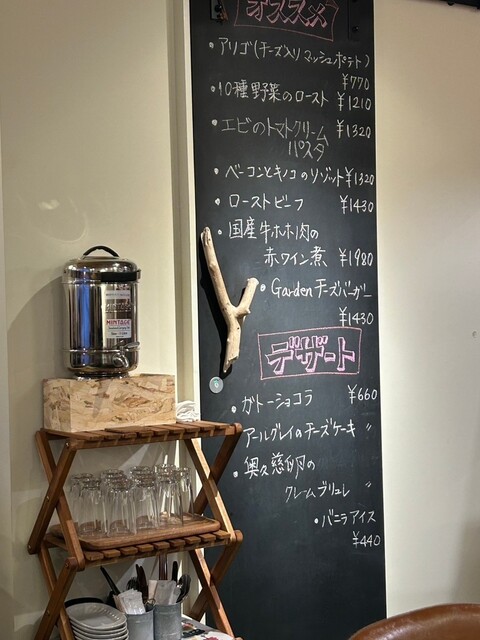 オススメ
・アリゴ(チーズ入りマッシュポテト)
¥770
・10種野菜のロースト ¥1210
・エビのトマトクリーム ¥1320
パスタ
・ベーコンとキノコのリゾット ¥1320
・ローストビーフ ¥1430
・国産牛ホホ肉の
赤ワイン煮 ¥1980
・Garden チーズバーガー
¥1430
デザート
・ガトーショコラ ¥660
アールグレイのチーズケーキ 〃
・奥久慈卵の
クレームブリュレ 〃
・バニラアイス
¥440